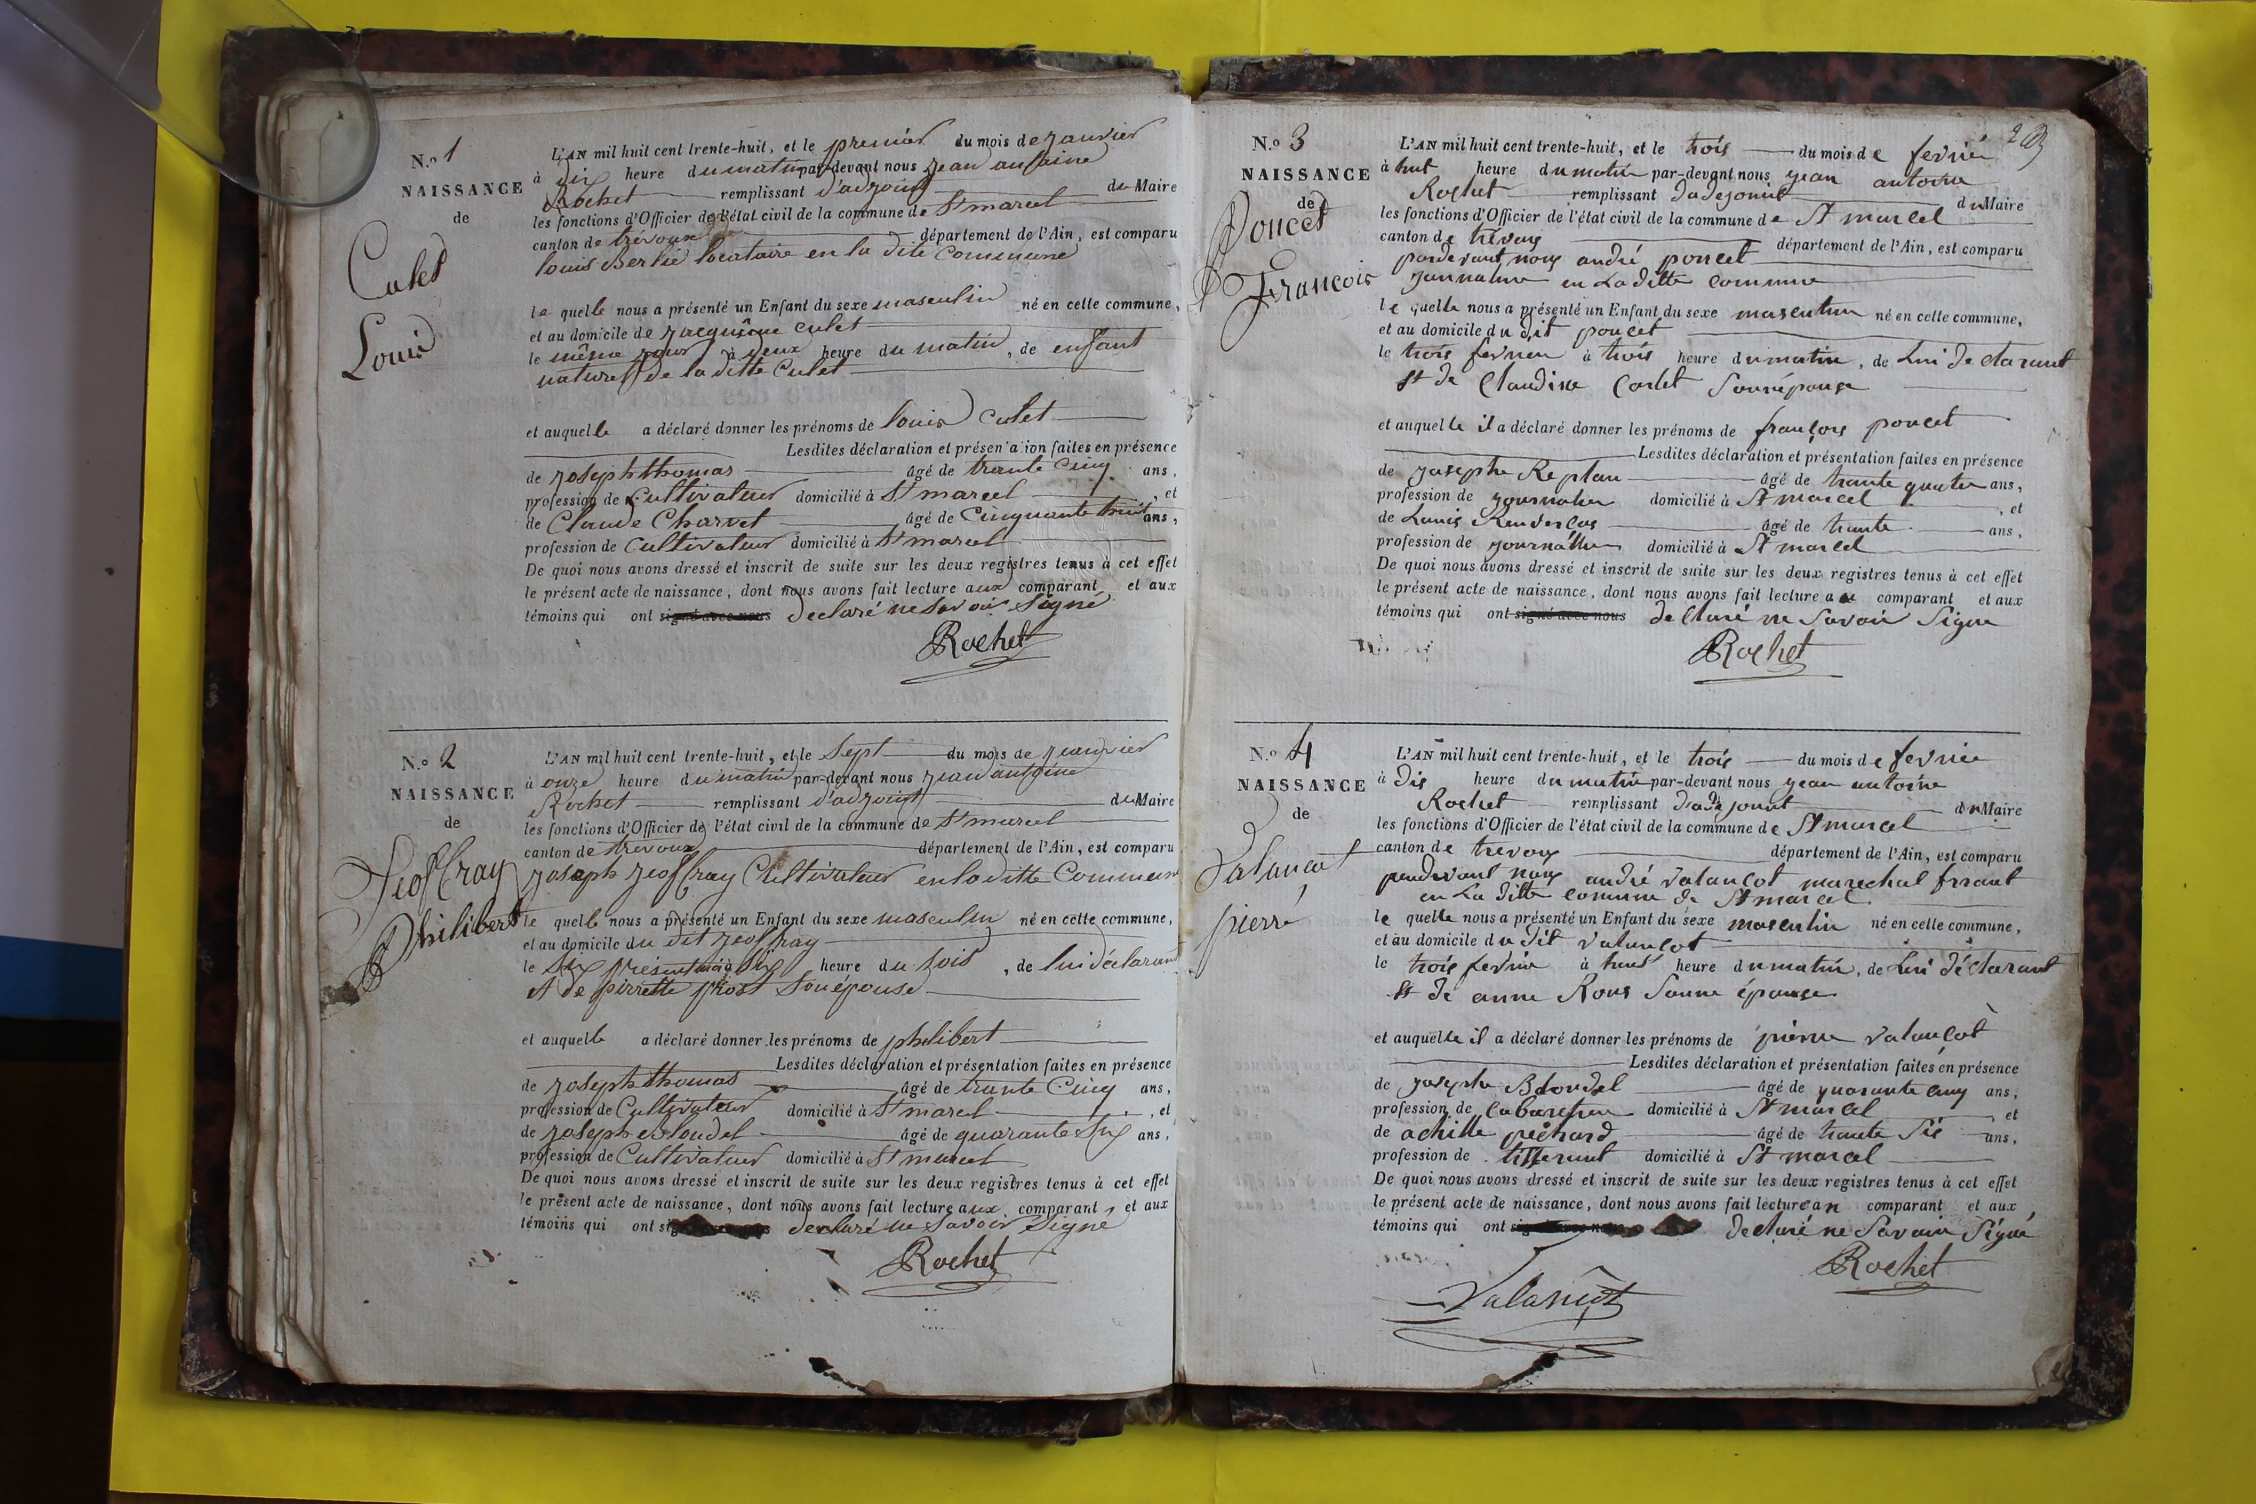 N.o 1
NAISSANCE
de
Culet
Louis
L'AN mil huit cent trente-huit, et le premier du mois de janvier
à dix heure du matin par-devant nous jean antoine
Rochet remplissant d'adjoint du Maire
les fonctions d'Officier de l'état civil de la commune de St marcel
canton de trévoux département de l'Ain, est comparu
louis Berlié locataire en la dite Commune
le quelle nous a présenté un Enfant du sexe masculin né en cette commune,
et au domicile de culet
le même jour à deux heure du matin, de enfant
naturel de la ditte Culet
et auquelle a déclaré donner les prénoms de louis culet
Lesdites déclaration et présentation faites en présence
de joseph thomas âgé de trante Cinq ans,
profession de Cultivateur domicilié à St marcel, et
de Claude Charvet âgé de Cinquante ans,
profession de Cultivateur domicilié à St marcel
De quoi nous avons dressé et inscrit de suite sur les deux registres tenus à cet effet
le présent acte de naissance, dont nous avons fait lecture aux comparant et aux
témoins qui ont signé avec nous declaré ne Savoir Signé
Rochet
N.o 2
NAISSANCE
de
Jeoffray
Philibert
L'AN mil huit cent trente-huit, et le Sept du mois de jeanvier
à onze heure du matin par-devant nous jean antoine
Rochet remplissant d'adjoint du Maire
les fonctions d'Officier de l'état civil de la commune de St marcel
canton de trévoux département de l'Ain, est comparu
joseph jeoffray Cultivateur en la ditte Commune
le quelle nous a présenté un Enfant du sexe masculin né en cette commune,
et au domicile du dit jeoffray
le Six présent mois à Six heure du Soir, de lui déclarant
et de pierrette priost Son épouse
et auquelle a déclaré donner les prénoms de philibert
Lesdites déclaration et présentation faites en présence
de joseph thomas âgé de trante Cinq ans,
profession de Cultivateur domicilié à St marcel, et
de joseph blondel âgé de quarante Six ans,
profession de Cultivateur domicilié à St marcel
De quoi nous avons dressé et inscrit de suite sur les deux registres tenus à cet effet
le présent acte de naissance, dont nous avons fait lecture aux comparant et aux
témoins qui ont declaré ne Savoir Signé
Rochet
N.o 3
NAISSANCE
de
Poncet
François
L'AN mil huit cent trente-huit, et le trois du mois de fevrié
à huit heure du matin par-devant nous jean antoine
Rochet remplissant dadejoint du Maire
les fonctions d'Officier de l'état civil de la commune de St marcel
canton de trévoux département de l'Ain, est comparu
pardevant nous andré poncet
journalier en La ditte commune
le quelle nous a présenté un Enfant du sexe masculin né en cette commune,
et au domicile du dit poncet
le trois fevrier à trois heure du matin, de Lui declarant
et de Claudine Corlet Son épouse
et auquelle il a déclaré donner les prénoms de françois poncet
Lesdites déclaration et présentation faites en présence
de josephe Replan âgé de trante quatre ans,
profession de journalier domicilié à St marcel, et
de Louis âgé de trante ans,
profession de journallier domicilié à St marcel
De quoi nous avons dressé et inscrit de suite sur les deux registres tenus à cet effet
le présent acte de naissance, dont nous avons fait lecture au comparant et aux
témoins qui ont signé avec nous declaré ne Savoir Signe
Rochet
N.o 4
NAISSANCE
de
Valançot
pierre
L'AN mil huit cent trente-huit, et le trois du mois de fevrier
à dis heure du matin par-devant nous jean antoine
Rochet remplissant dadejoint du Maire
les fonctions d'Officier de l'état civil de la commune de St marcel
canton de trevoux département de l'Ain, est comparu
pardevant nous andré valançot marechal ferant
en La ditte comune de St marcel
le quelle nous a présenté un Enfant du sexe masculin né en cette commune,
et au domicile du dit valançot
le trois fevrier à huit heure du matin, de Lui déclarant
et de anne Rous Sonne épouse
et auquelle il a déclaré donner les prénoms de pierre valançot
Lesdites déclaration et présentation faites en présence
de josephe Blondel âgé de quarante cinq ans,
profession de cabaretier domicilié à St marcel et
de achille péchard âgé de trante Sis ans,
profession de tisserant domicilié à St marcel
De quoi nous avons dressé et inscrit de suite sur les deux registres tenus à cet effet
le présent acte de naissance, dont nous avons fait lecture au comparant et aux
témoins qui ont declaré ne Savoir Signé
Rochet
Valançot